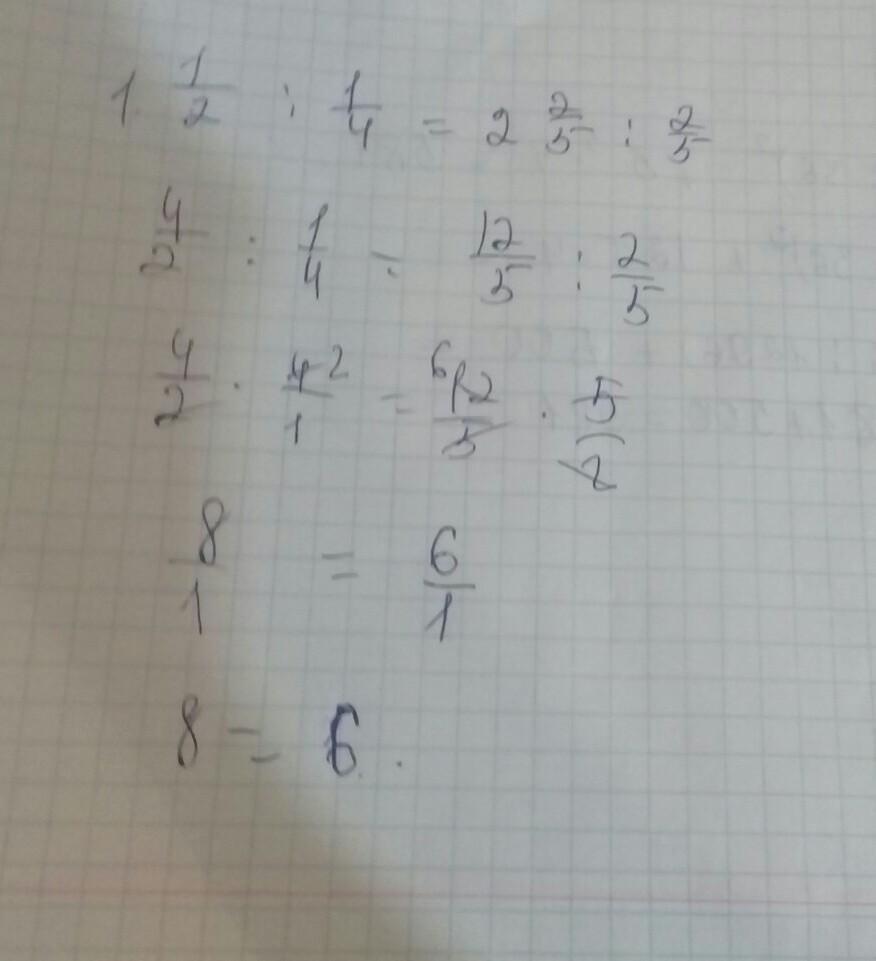 1 1/2 : 1/4 = 2 2/5 : 2/5
4/2 : 1/4 = 12/5 : 2/5
4/2 · 4/1 2 = 6 12/5 · 5/2
8/1 = 6/1
8 = 6.